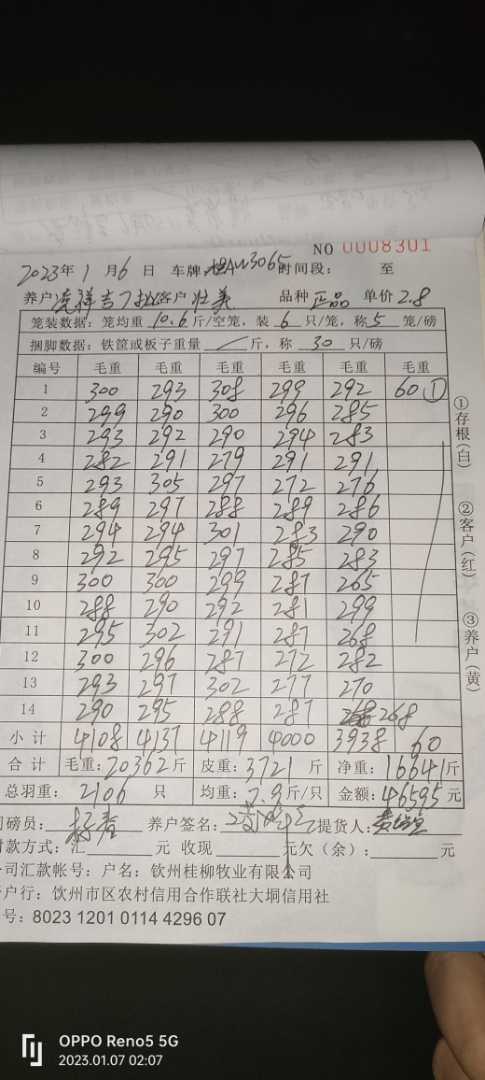 NO 0008301
2023年 1 月 6 日 车牌: AW3065 时间段: 至
养户 客户 壮美 品种 正品 单价 2.8
笼装数据: 笼均重 10.6 斤/空笼, 装 6 只/笼, 称 5 笼/磅
捆脚数据: 铁筐或板子重量 斤, 称 30 只/磅
编号 毛重 毛重 毛重 毛重 毛重 毛重
1 300 293 308 299 292 60 ①
2 299 290 300 296 285
3 293 292 290 294 283
4 282 291 279 291 291
5 293 305 297 272 276
6 289 297 288 289 286
7 294 294 301 283 290
8 292 295 297 285 283
9 300 300 299 287 265
10 288 290 292 281 299
11 295 302 291 287 268
12 300 296 287 272 282
13 293 297 302 277 270
14 290 295 288 287 268
小计 4108 4137 4119 4000 3938 60
合计 毛重: 20362 斤 皮重: 3721 斤 净重: 16641 斤
总羽重: 2106 只 均重: 7.9 斤/只 金额: 46595 元
磅员: 养户签名: 提货人:
付款方式: 汇 元 收现 元欠(余): 元
司汇款帐号: 户名: 钦州桂柳牧业有限公司
户行: 钦州市区农村信用合作联社大垌信用社
号: 8023 1201 0114 4296 07
①存根(白)
②客户(红)
③养户(黄)
OPPO Reno5 5G
2023.01.07 02:07